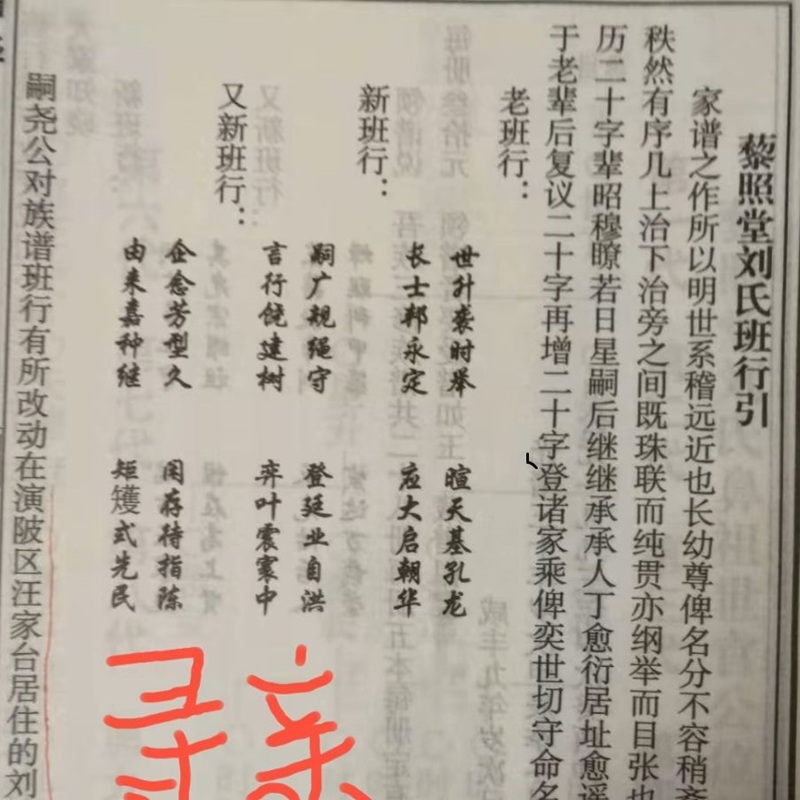 藜照堂刘氏班行引
家谱之作所以明世系稽远近也长幼尊俾名分不容稍紊
秩然有序几上治下治旁之间既珠联而纯贯亦纲举而目张也
历二十字辈昭穆瞭若日星嗣后继继承承人丁愈衍居址愈遥
于老辈后复议二十字再增二十字登诸家乘俾奕世切守命名
老班行：
世升袭时举 暄天基孔龙
长士邦永定 应大启朝华
新班行：
嗣广规绳守 登廷业自洪
言行饶建树 弈叶震寰中
又新班行：
企念芳型久 闲存待指陈
由来嘉种继 矩矱式先民
嗣尧公对族谱班行有所改动在演陂区汪家台居住的刘
寻亲